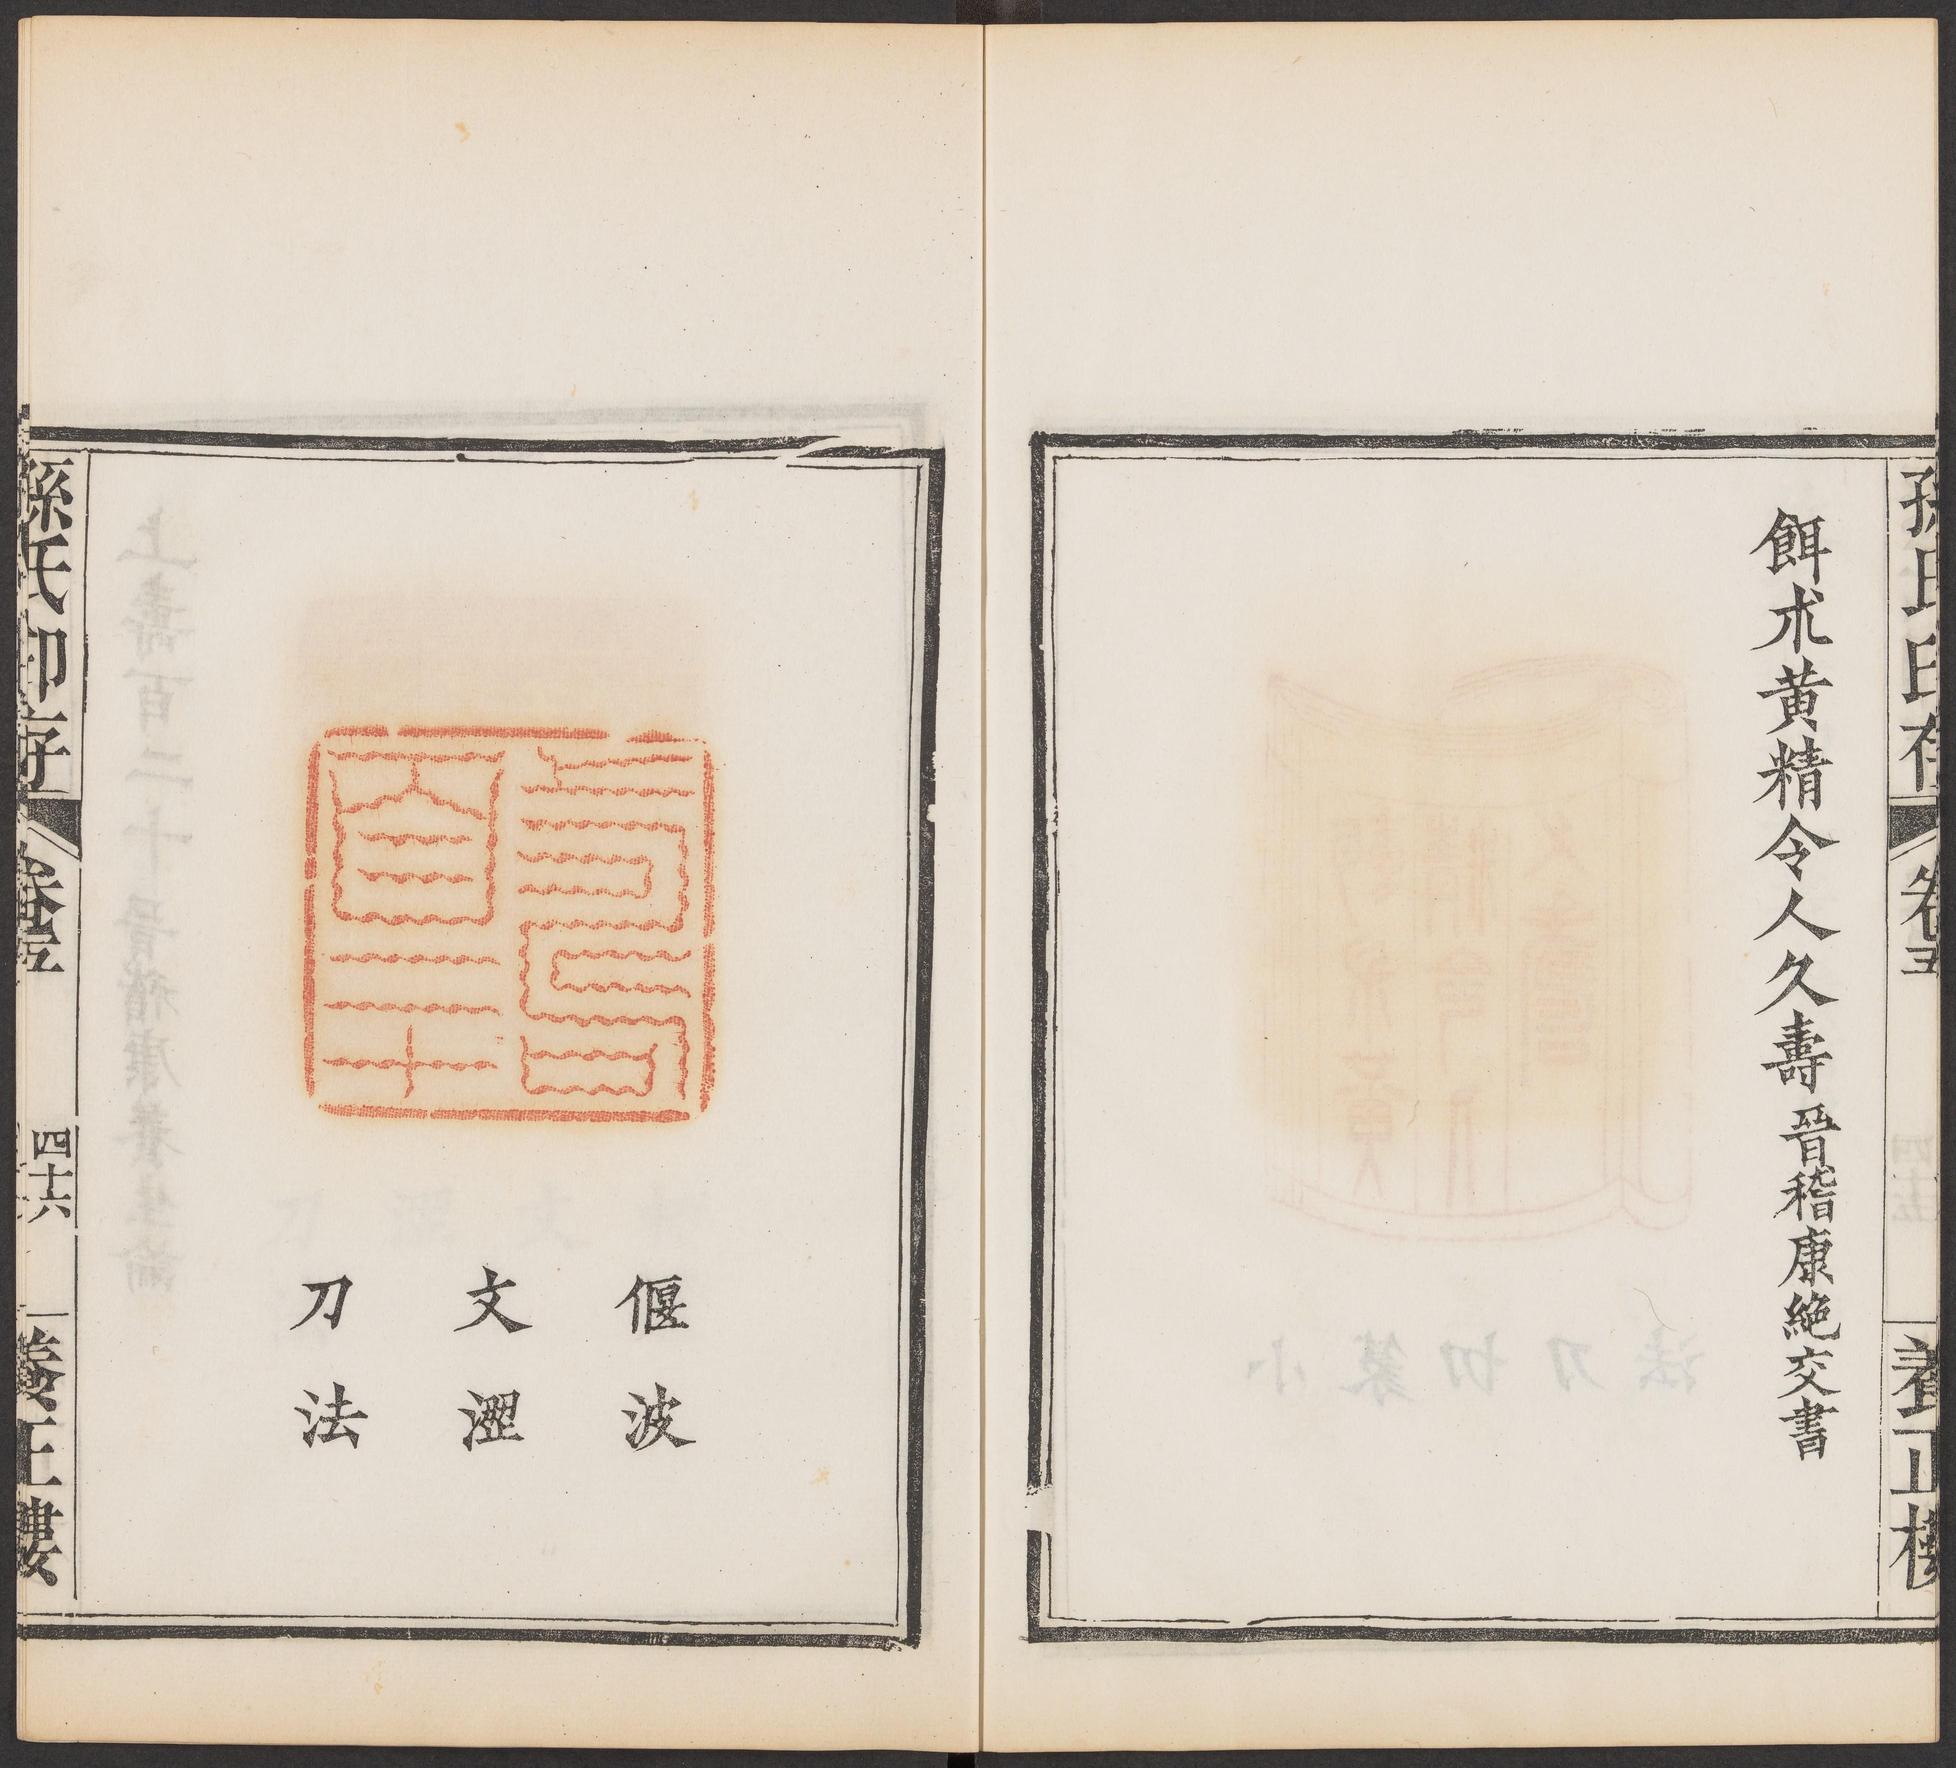 孫氏印存
卷五
養正樓
餌朮黃精令人久壽 晉嵇康絕交書
上壽百二十
偃波
文澀
刀法
孫氏印存
卷五
四十六
養正樓